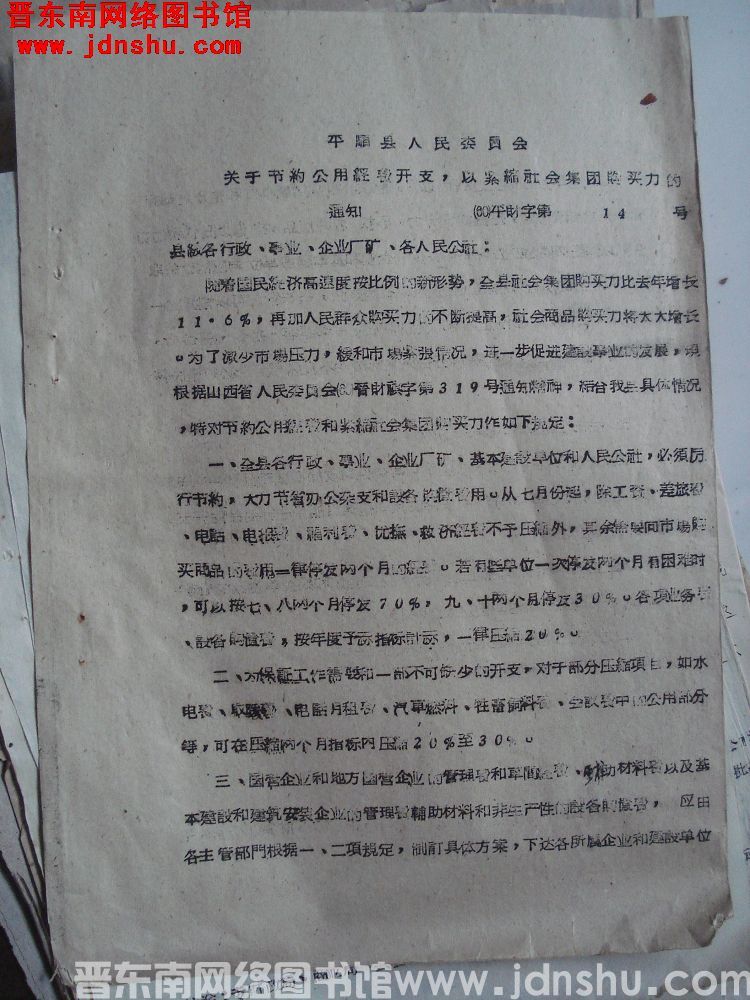 晋东南网络图书馆
www.jdnshu.com
平順县人民委員会
关于节約公用經費开支，以紧縮社会集团购买力的
通知 (60)平財字第 14 号
县級各行政、事业、企业厂矿、各人民公社：
随着国民經济高速度按比例的新形势，全县社会集团购买力比去年增长
11.6%，再加人民群众购买力的不断提高，社会商品购买力将大大增长
。为了减少市場压力，緩和市場紧張情况，进一步促进建設事业的发展，須
根据山西省人民委員会(60)晋財 字第319号通知精神，結合我县具体情况
，特对节約公用經費和紧縮社会集团购买力作如下規定：
一、全县各行政、事业、企业厂矿、基本建設单位和人民公社，必須厉
行节約，大力节省办公杂支和設备购置費用。从七月份起，除工資、差旅費
、电話、电报費、福利費、优撫、救济經費不予压縮外，其余需要向市場购
买商品的費用一律停发两个月的經費。若有些单位一次停发两个月有困难时
，可以按七、八两个月停发70%，九、十两个月停发30%。各項业务費
、設备购置費，按年度予标指标計标，一律压縮20%。
二、为保証工作需要和一部不可缺少的开支，对于部分压縮項目，如水
电費、取暖費、电話月租費、汽車燃料、牲畜飼料費、会議費中的公用部分
等，可在压縮两个月指标内压縮20%至30%。
三、国营企业和地方国营企业的管理費和車間經費、輔助材料費以及基
本建設和建筑安装企业的管理費輔助材料和非生产性的設备购置費，应由
各主管部門根据一、二項規定，制訂具体方案，下达各所属企业和建設单位
晋东南网络图书馆 www.jdnshu.com